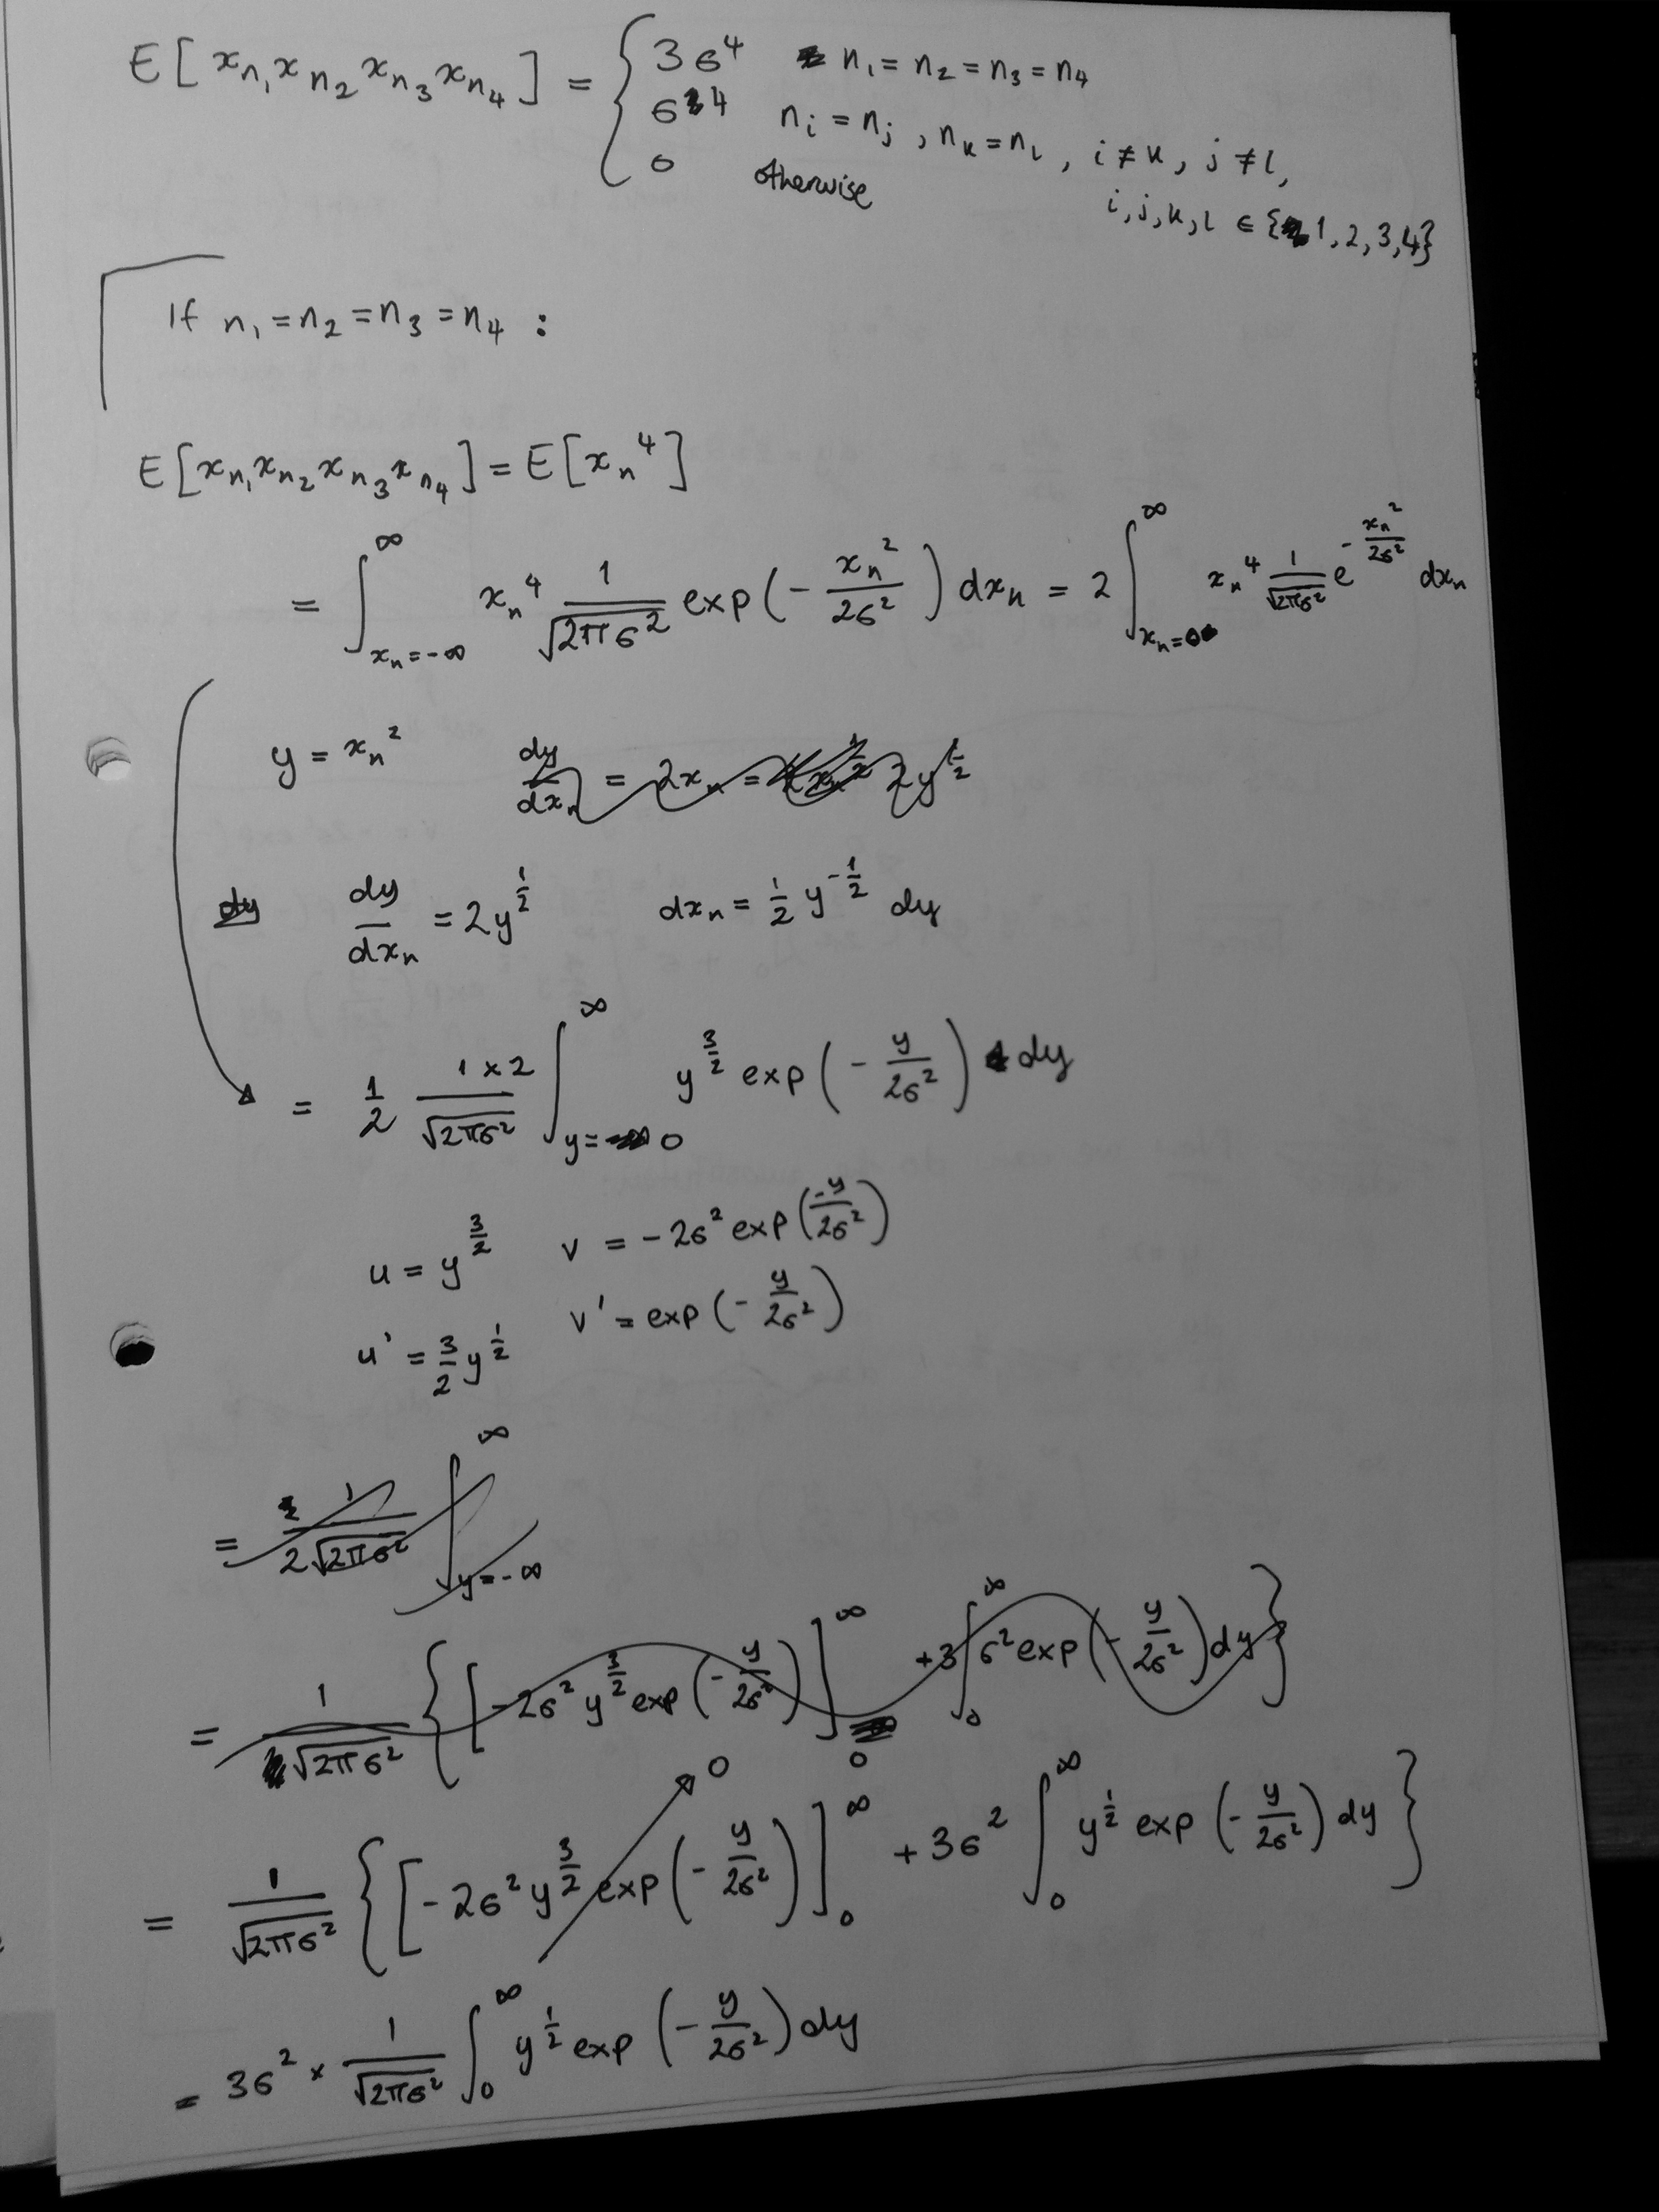 E[x_{n_1} x_{n_2} x_{n_3} x_{n_4}] = { 3σ^4 n_1 = n_2 = n_3 = n_4
σ^4 n_i = n_j , n_k = n_l , i ≠ k, j ≠ l,
0 otherwise
i, j, k, l ∈ {1, 2, 3, 4}
If n_1 = n_2 = n_3 = n_4 :
E[x_{n_1} x_{n_2} x_{n_3} x_{n_4}] = E[x_n^4]
= ∫_{x_n=-∞}^{∞} x_n^4 \frac{1}{\sqrt{2πσ^2}} exp(-\frac{x_n^2}{2σ^2}) dx_n = 2 ∫_{x_n=0}^{∞} x_n^4 \frac{1}{\sqrt{2πσ^2}} e^{-\frac{x_n^2}{2σ^2}} dx_n
y = x_n^2 \frac{dy}{dx_n} = 2x_n = 2y^{\frac{1}{2}}
dy \frac{dy}{dx_n} = 2y^{\frac{1}{2}} dx_n = \frac{1}{2} y^{-\frac{1}{2}} dy
= \frac{1}{2} \frac{1 × 2}{\sqrt{2πσ^2}} ∫_{y=0}^{∞} y^{\frac{3}{2}} exp(-\frac{y}{2σ^2}) dy
u = y^{\frac{3}{2}} v = -2σ^2 exp(\frac{-y}{2σ^2})
u' = \frac{3}{2} y^{\frac{1}{2}} v' = exp(-\frac{y}{2σ^2})
= \frac{1}{2\sqrt{2πσ^2}} ∫_{y=-∞}^{∞}
= \frac{1}{\sqrt{2πσ^2}} { [-2σ^2 y^{\frac{3}{2}} exp(-\frac{y}{2σ^2})]_0^∞ + 3 ∫_0^∞ σ^2 exp(-\frac{y}{2σ^2}) dy }
= \frac{1}{\sqrt{2πσ^2}} { [-2σ^2 y^{\frac{3}{2}} exp(-\frac{y}{2σ^2})]_0^∞ → 0 + 3σ^2 ∫_0^∞ y^{\frac{1}{2}} exp(-\frac{y}{2σ^2}) dy }
= 3σ^2 × \frac{1}{\sqrt{2πσ^2}} ∫_0^∞ y^{\frac{1}{2}} exp(-\frac{y}{2σ^2}) dy